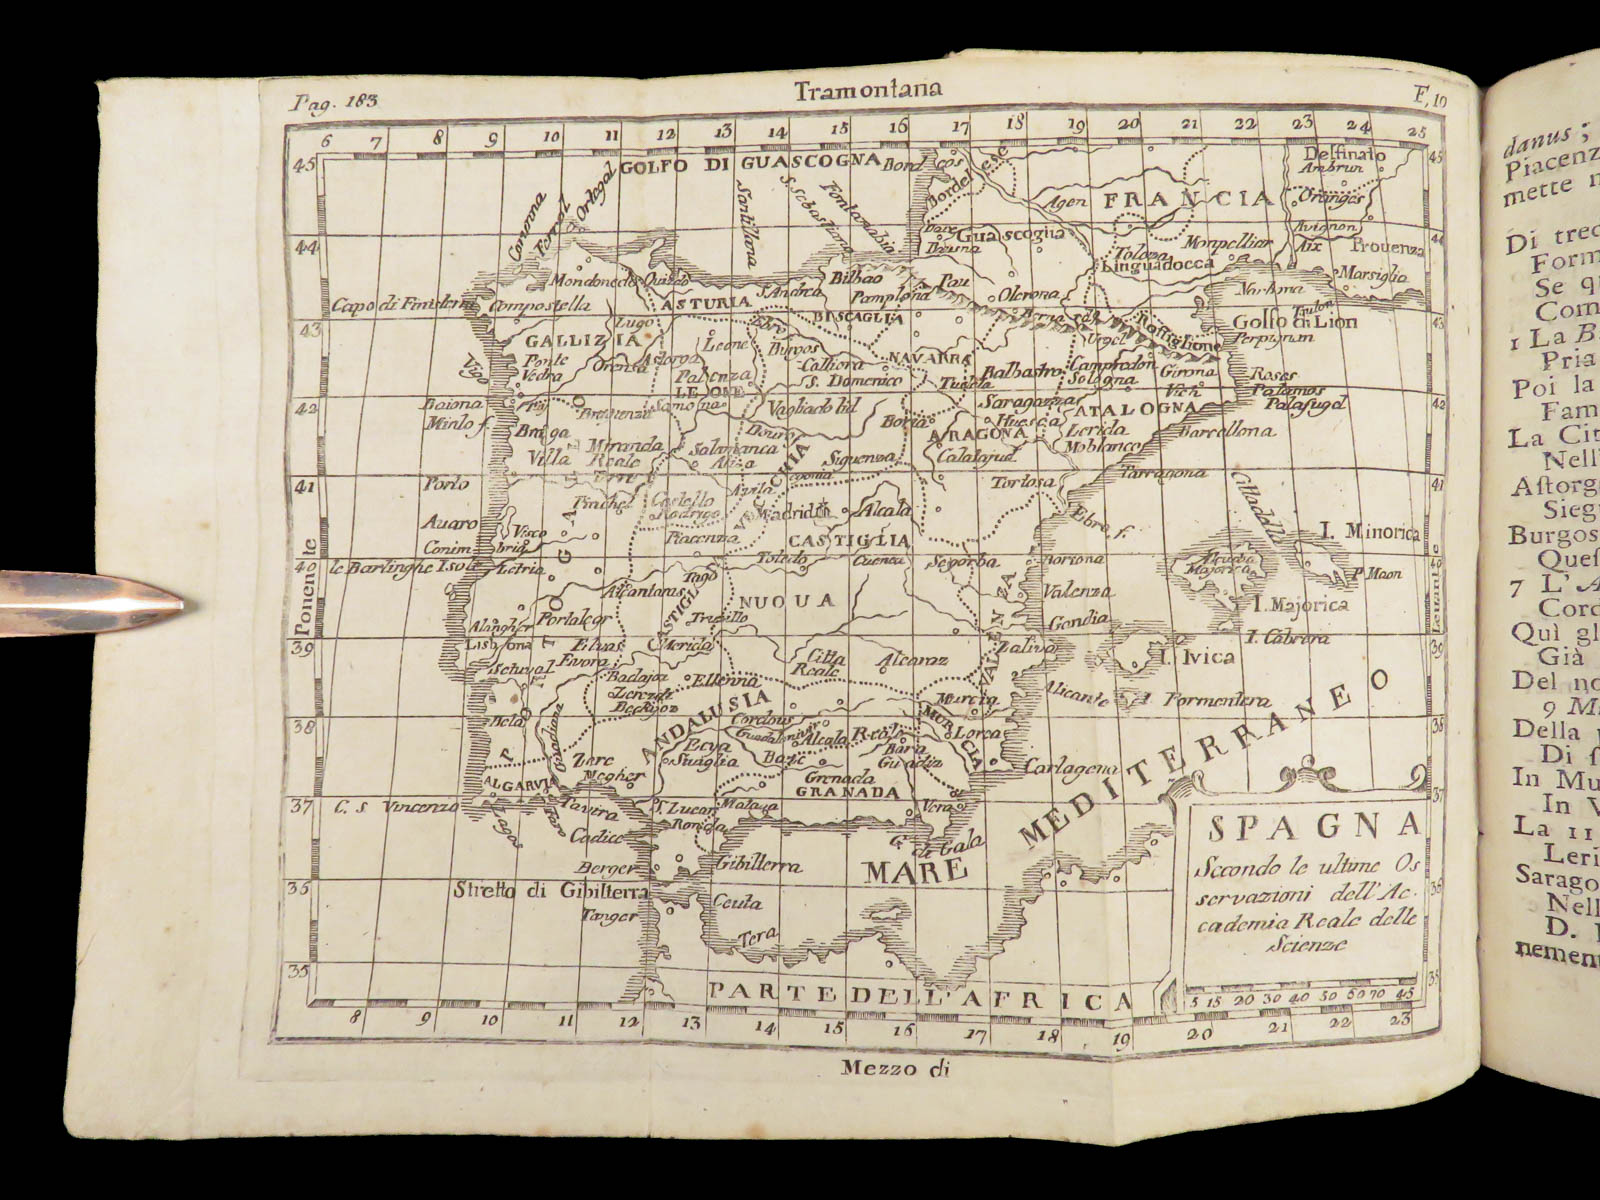 Pag. 183
Tramontana
F, 10
6 7 8 9 10 11 12 13 14 15 16 17 18 19 20 21 22 23 24 25
45
GOLFO DI GUASCOGNA
Bord
Delfinato
Ambrun
45
Coronna
Ferrol
Ortegal
Santillana
S. Sebastiano
Fontarabia
Agen
FRANCIA
Oranges
Avignon
44
Guascogna
Monpellier
Aix
Provenza
44
Tolosa
Linguadocca
Marsiglia
Mondonedo
Bilbao
Pau
Narbona
Capo di Finisterre
Compostella
ASTURIA
S. Andrea
Pamplona
Olerona
Tulon
43
Lugo
BISCAGLIA
Golfo di Lion
43
GALLIZIA
Leone
Burgos
Urgel
Rossiglione
Perpignan
Vigo
Ponte
Vedra
Orensa
Astorga
Calliora
NAVARRA
Palenza
S. Domenico
Tudela
Balbastro
Campredon
Solsogna
Girona
Roses
LEONE
Vich
Palamos
42
Baiona
Vagliadolid
Saragozza
CATALOGNA
Palafugel
42
Minio f.
Braga
Douro
Huesca
ARAGONA
Lerida
Barcellona
Villa
Reale
Miranda
Salamanca
Siguenza
Calatajud
Moblanco
41
Porto
Avila
Tortosa
Tarragona
41
Pinchel
Castello
Rodrigo
Madrid
Alcala
Ebro f.
Cittadella
Avaro
Visco
I. Minorica
Conim
bria
Piacenza
CASTIGLIA
40
le Barlinghe Isole
Letria
Toledo
Cuenca
Segorba
Boriona
P. Maon
40
Ponente
Levante
Alcantaras
Tago
Majorica
CASTIGLIA
NUOUA
VALENZA
Valenza
I. Majorica
Portalegr
Trugillo
Gandia
39
Lisbona
Elvas
Merida
Xativa
I. Cabrera
39
Setuval
Evora
Citta
Reale
Alcaraz
I. Ivica
Badajox
Ellenna
Murcia
Alicante
Formentera
38
Beia
ANDALUSIA
38
PORTOGALLO
Guadiana
Cordous
Alcala
Reale
MURCIA
Lorca
Ecya
Siviglia
Baza
Guadiz
Cartagena
ALGARVIA
Grenada
GRANADA
37
C. S. Vincenzo
Tavira
S. Lucar
Malaga
Vera
37
Lagos
Faro
Cadice
Ronda
G. di Gata
Berger
Gibilterra
MARE MEDITERRANEO
36
Stretto di Gibilterra
Ceuta
36
Tanger
Tera
35
PARTE DELL'AFRICA
35
SPAGNA
Secondo le ultime Os
servazioni dell'Ac-
cademia Reale delle
Scienze
5 15 20 30 40 50 60 70 45
8 9 10 11 12 13 14 15 16 17 18 19 20 21 22 23
Mezzo di
danus;
Piacenz
mette n
Di trec
Form
Se q
Com
1 La B
Pria
Poi la
Fam
La Cit
Nell'
Astorg
Sieg
Burgos
Ques
7 L'A
Cord
Quì gl
Già
Del no
9 M
Della
Di f
In Mu
In V
La 11
Leri
Sarago
Nell
D.
nement